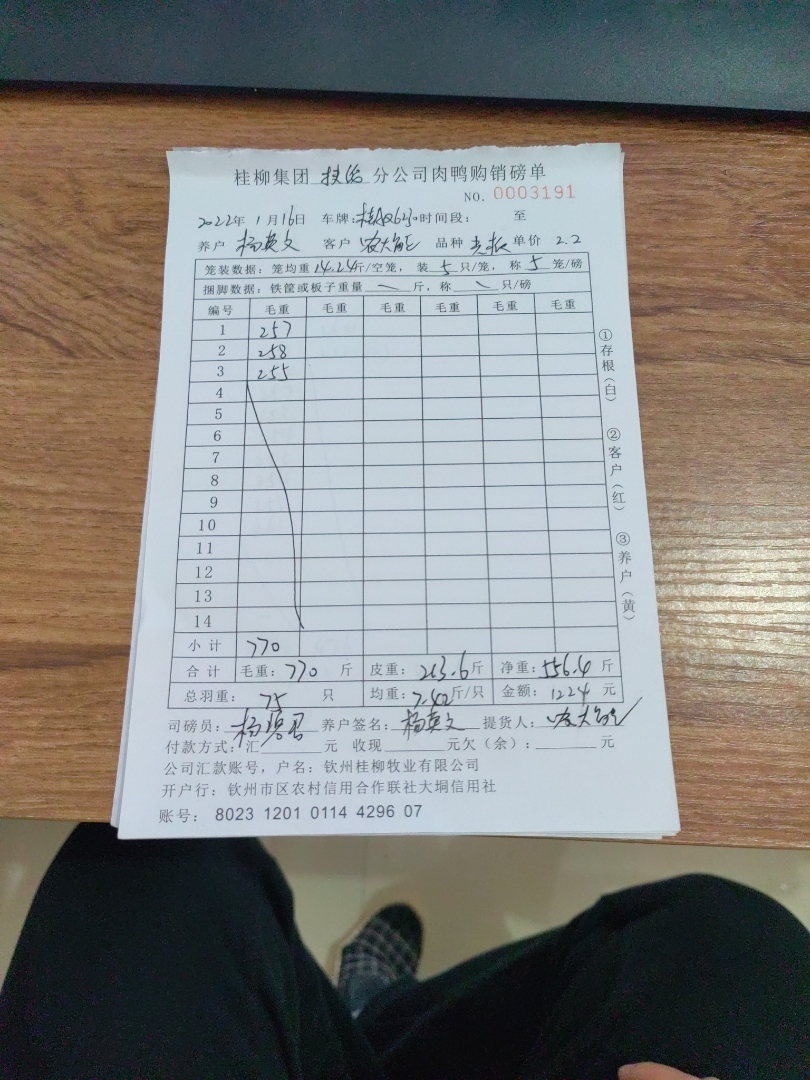 桂柳集团 扶绥 分公司肉鸭购销磅单
NO. 0003191
2022年 1月16日 车牌: 时间段: 至
养户 杨英文 客户 农大能 品种 单价 2.2
笼装数据: 笼均重 14.24斤/空笼, 装 5 只/笼, 称 5 笼/磅
捆脚数据: 铁筐或板子重量 斤, 称 只/磅
编号 毛重 毛重 毛重 毛重 毛重 毛重
1 257
2 258
3 255
4
5
6
7
8
9
10
11
12
13
14
小计 770
合计 毛重: 770 斤 皮重: 213.6斤 净重: 556.4 斤
总羽重: 75 只 均重: 7.42斤/只 金额: 1224 元
司磅员: 养户签名: 杨英文 提货人: 农大能
付款方式: 汇 元 收现 元欠(余): 元
公司汇款账号, 户名: 钦州桂柳牧业有限公司
开户行: 钦州市区农村信用合作联社大垌信用社
账号: 8023 1201 0114 4296 07
①存根(白)
②客户(红)
③养户(黄)